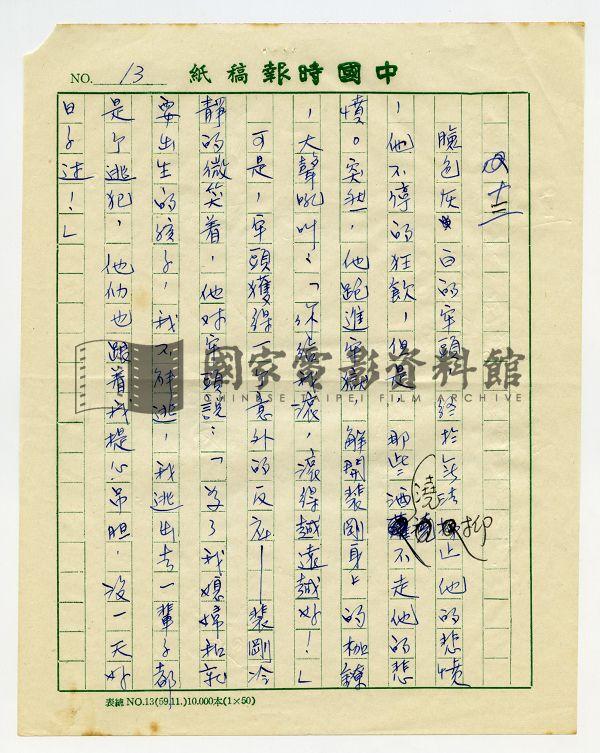 中國時報稿紙
NO. 13
四十三
臉色灰白的牢頭終於無法抑止他的悲憤
，他不停的狂飲，但是，那些酒澆不走他的悲
憤。突然，他跑進牢獄，解開裴剛身上的枷鎖
，大聲吼叫：「你給我滾，滾得越遠越好！」
可是，牢頭獲得一個意外的反應——裴剛冷
靜的微笑着，他對牢頭說：「為了我媳婦和就
要出生的孩子，我不能逃，我逃出去一輩子都
是個逃犯，他們也跟着我提心吊胆，沒一天好
日子过！」
國家電影資料館
CHINESE TAIPEI FILM ARCHIVE
表總 NO.13(59.11.)10.000本(1×50)